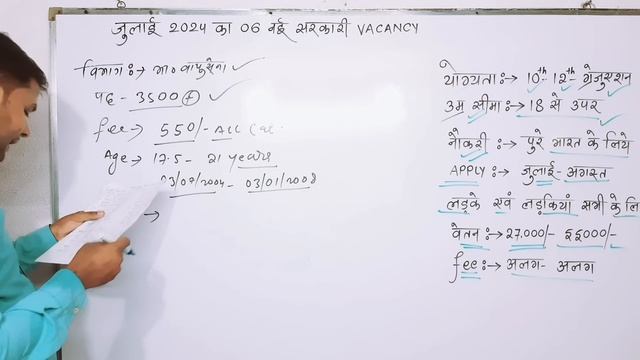 जुलाई 2024 का 06 नई सरकारी VACANCY
विभाग :→ भा० वायुसेना
पद - 3500 +
fee :→ 550/- ALL Cat.
Age → 17.5 - 21 years
03/07/2004 - 03/01/2008
→
योग्यता :→ 10th 12th ग्रेजुएशन
उम्र सीमा :→ 18 से उपर
नौकरी :→ पुरे भारत के लिये
APPLY :→ जुलाई - अगस्त
लड़के एवं लड़कियां सभी के लि
वेतन :→ 27,000/- 66000/-
fee :→ अलग - अलग